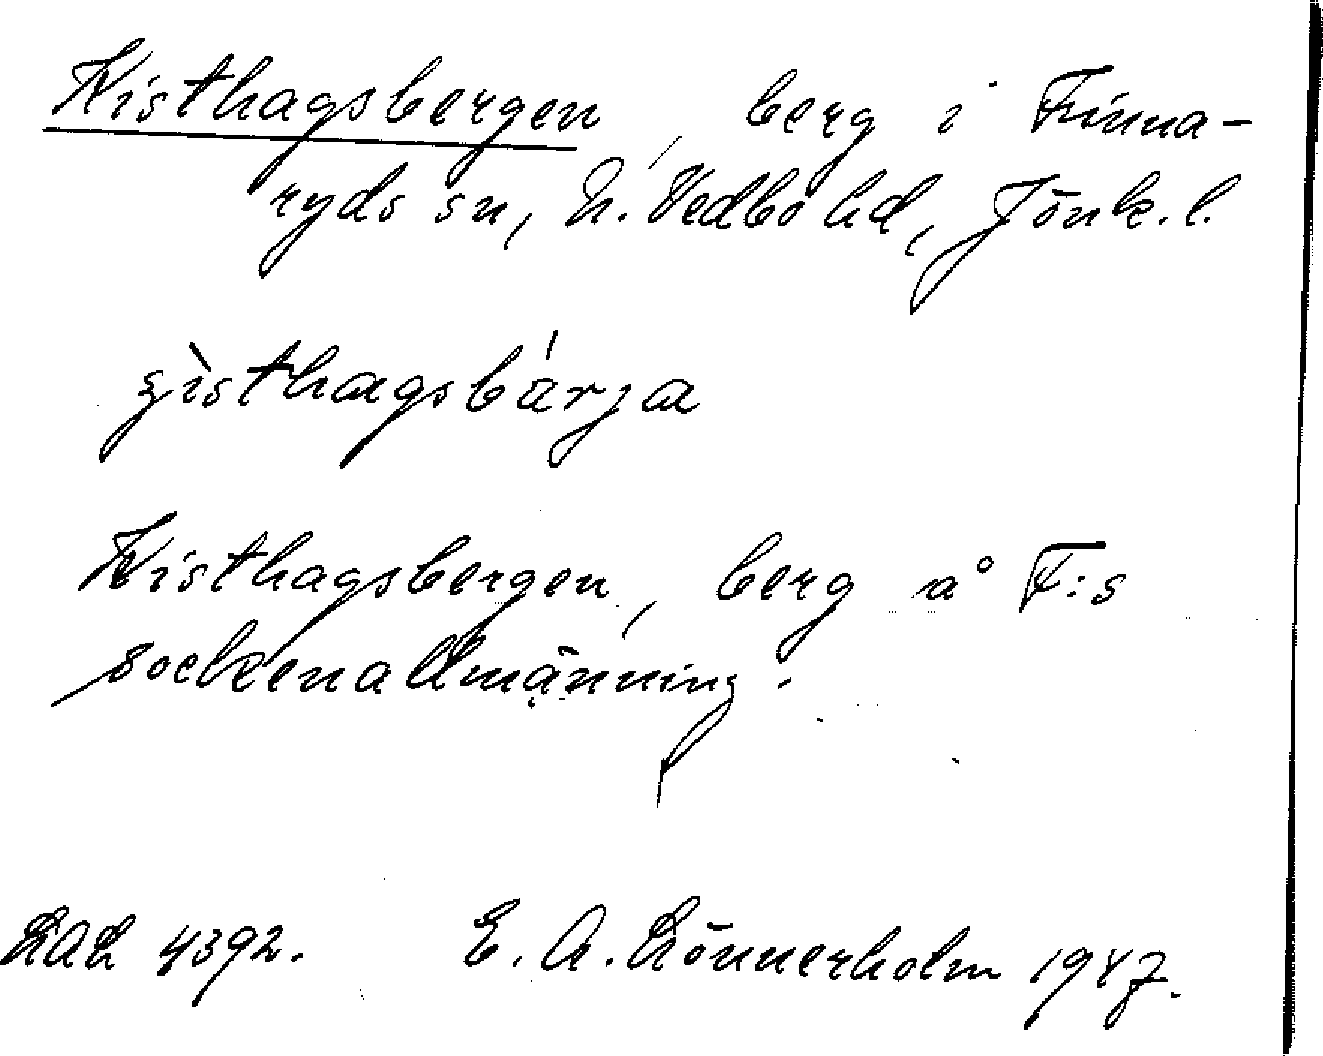 Kisthagsbergen, berg i Finna-
ryds sn, N. Vedbo hd, Jönk. l.
ʂìsthagsbárja
Kisthagsbergen, berg å F:s
sockenallmänning.
LAL 4392. E. A. Lönnerholm 1947.